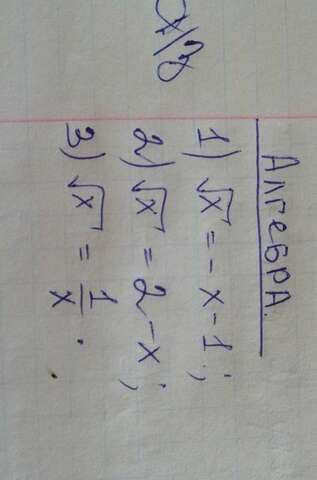 Алгебра.
1) √x = -x-1;
2) √x = 2-x;
3) √x = 1/x.